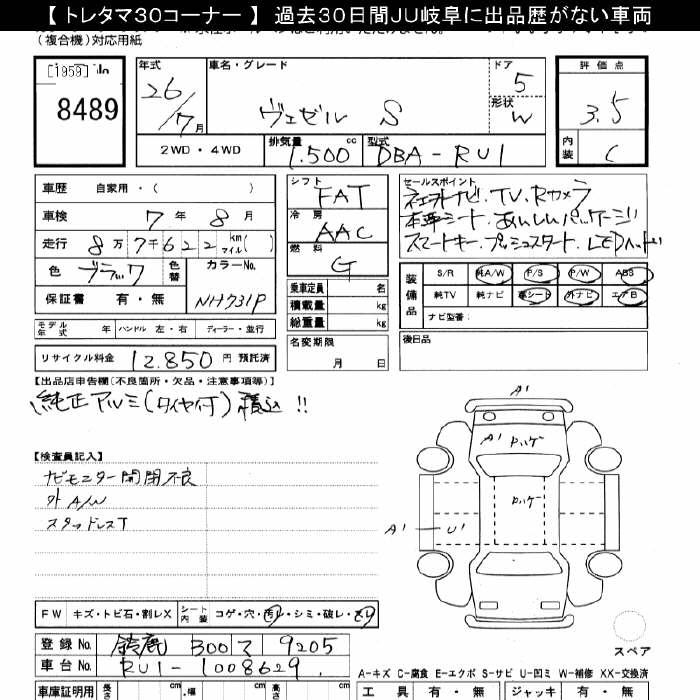 【 トレタマ30コーナー 】 過去30日間JU岐阜に出品歴がない車両
(複合機)対応用紙
[1959]
8489
年式
26/7月
車名・グレード
ヴェゼル S
ドア
5
形状
W
評価点
3.5
内装
C
2WD・4WD
排気量
1,500 cc
型式
DBA-RU1
車歴 自家用・( )
車検 7年 8月
走行 8万7千622 km マイル( )
色 ブラック
色替
カラーNo.
NH731P
保証書 有・無
シフト
FAT
冷房
AAC
燃料
G
乗車定員 名
積載量 kg
総重量 kg
セールスポイント
ナビ・TV・Rカメラ
本革シート・あんしんパッケージ
スマートキー・プッシュスタート・LEDヘッド
装備品
S/R 純A/W P/S P/W ABS
純TV 純ナビ 革シート 外ナビ エアB
ナビ型番:
モデル年式 年 ハンドル 左・右 ディーラー・並行
名変期限
月 日
後日品
リサイクル料金 12,850 円 預託済
【出品店申告欄(不良箇所・欠品・注意事項等)】
純正アルミ(タイヤ付)積込!!
【検査員記入】
ナビモニター開閉不良
外A/W
スタッドレスT
A1
A1 ロハゲ
ロハゲ
A1 U1
スペア
FW キズ・トビ石・割レX
シート内装 コゲ・穴・汚レ・シミ・破レ・スレ
登録No. 鈴鹿 300 マ 9205
車台No. RU1-1008629
A-キズ C-腐食 E-エクボ S-サビ U-凹ミ W-補修 XX-交換済
車庫証明用 長さ cm 幅 cm 高さ cm
工具 有・無 ジャッキ 有・無